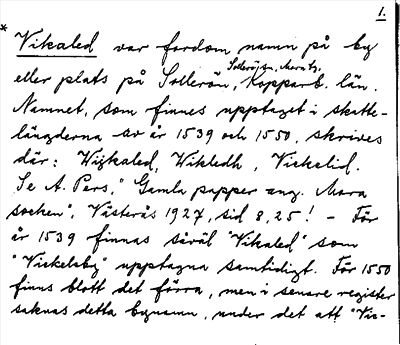 1.
* Vikaled var fordom namn på by
Sollerö sn, Mora tg,
eller plats på Sollerön, Kopparb. län.
Namnet, som finnes upptaget i skatte-
längderna av år 1539 och 1550, skrives
där: Wigkaled, Wikledh, Vickelid.
Se A. Pers, "Gamla papper ang. Mora
socken", Västerås 1927, sid 8, 25! – För
år 1539 finnas såväl "Vikaled" som
"Vickelsby" upptagna samtidigt. För 1550
finns blott det förra, men i senare register
saknas detta bynamn, under det att "Vic-